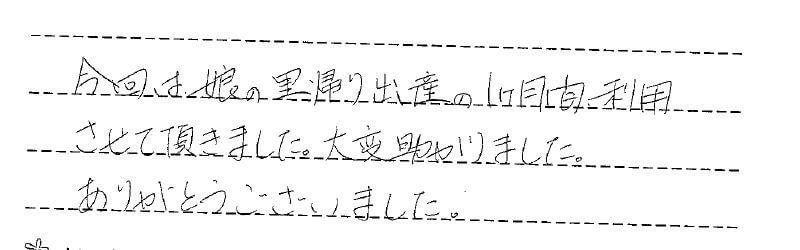 今回は娘の里帰り出産の1ヶ月間、利用
させて頂きました。大変助かりました。
ありがとうございました。